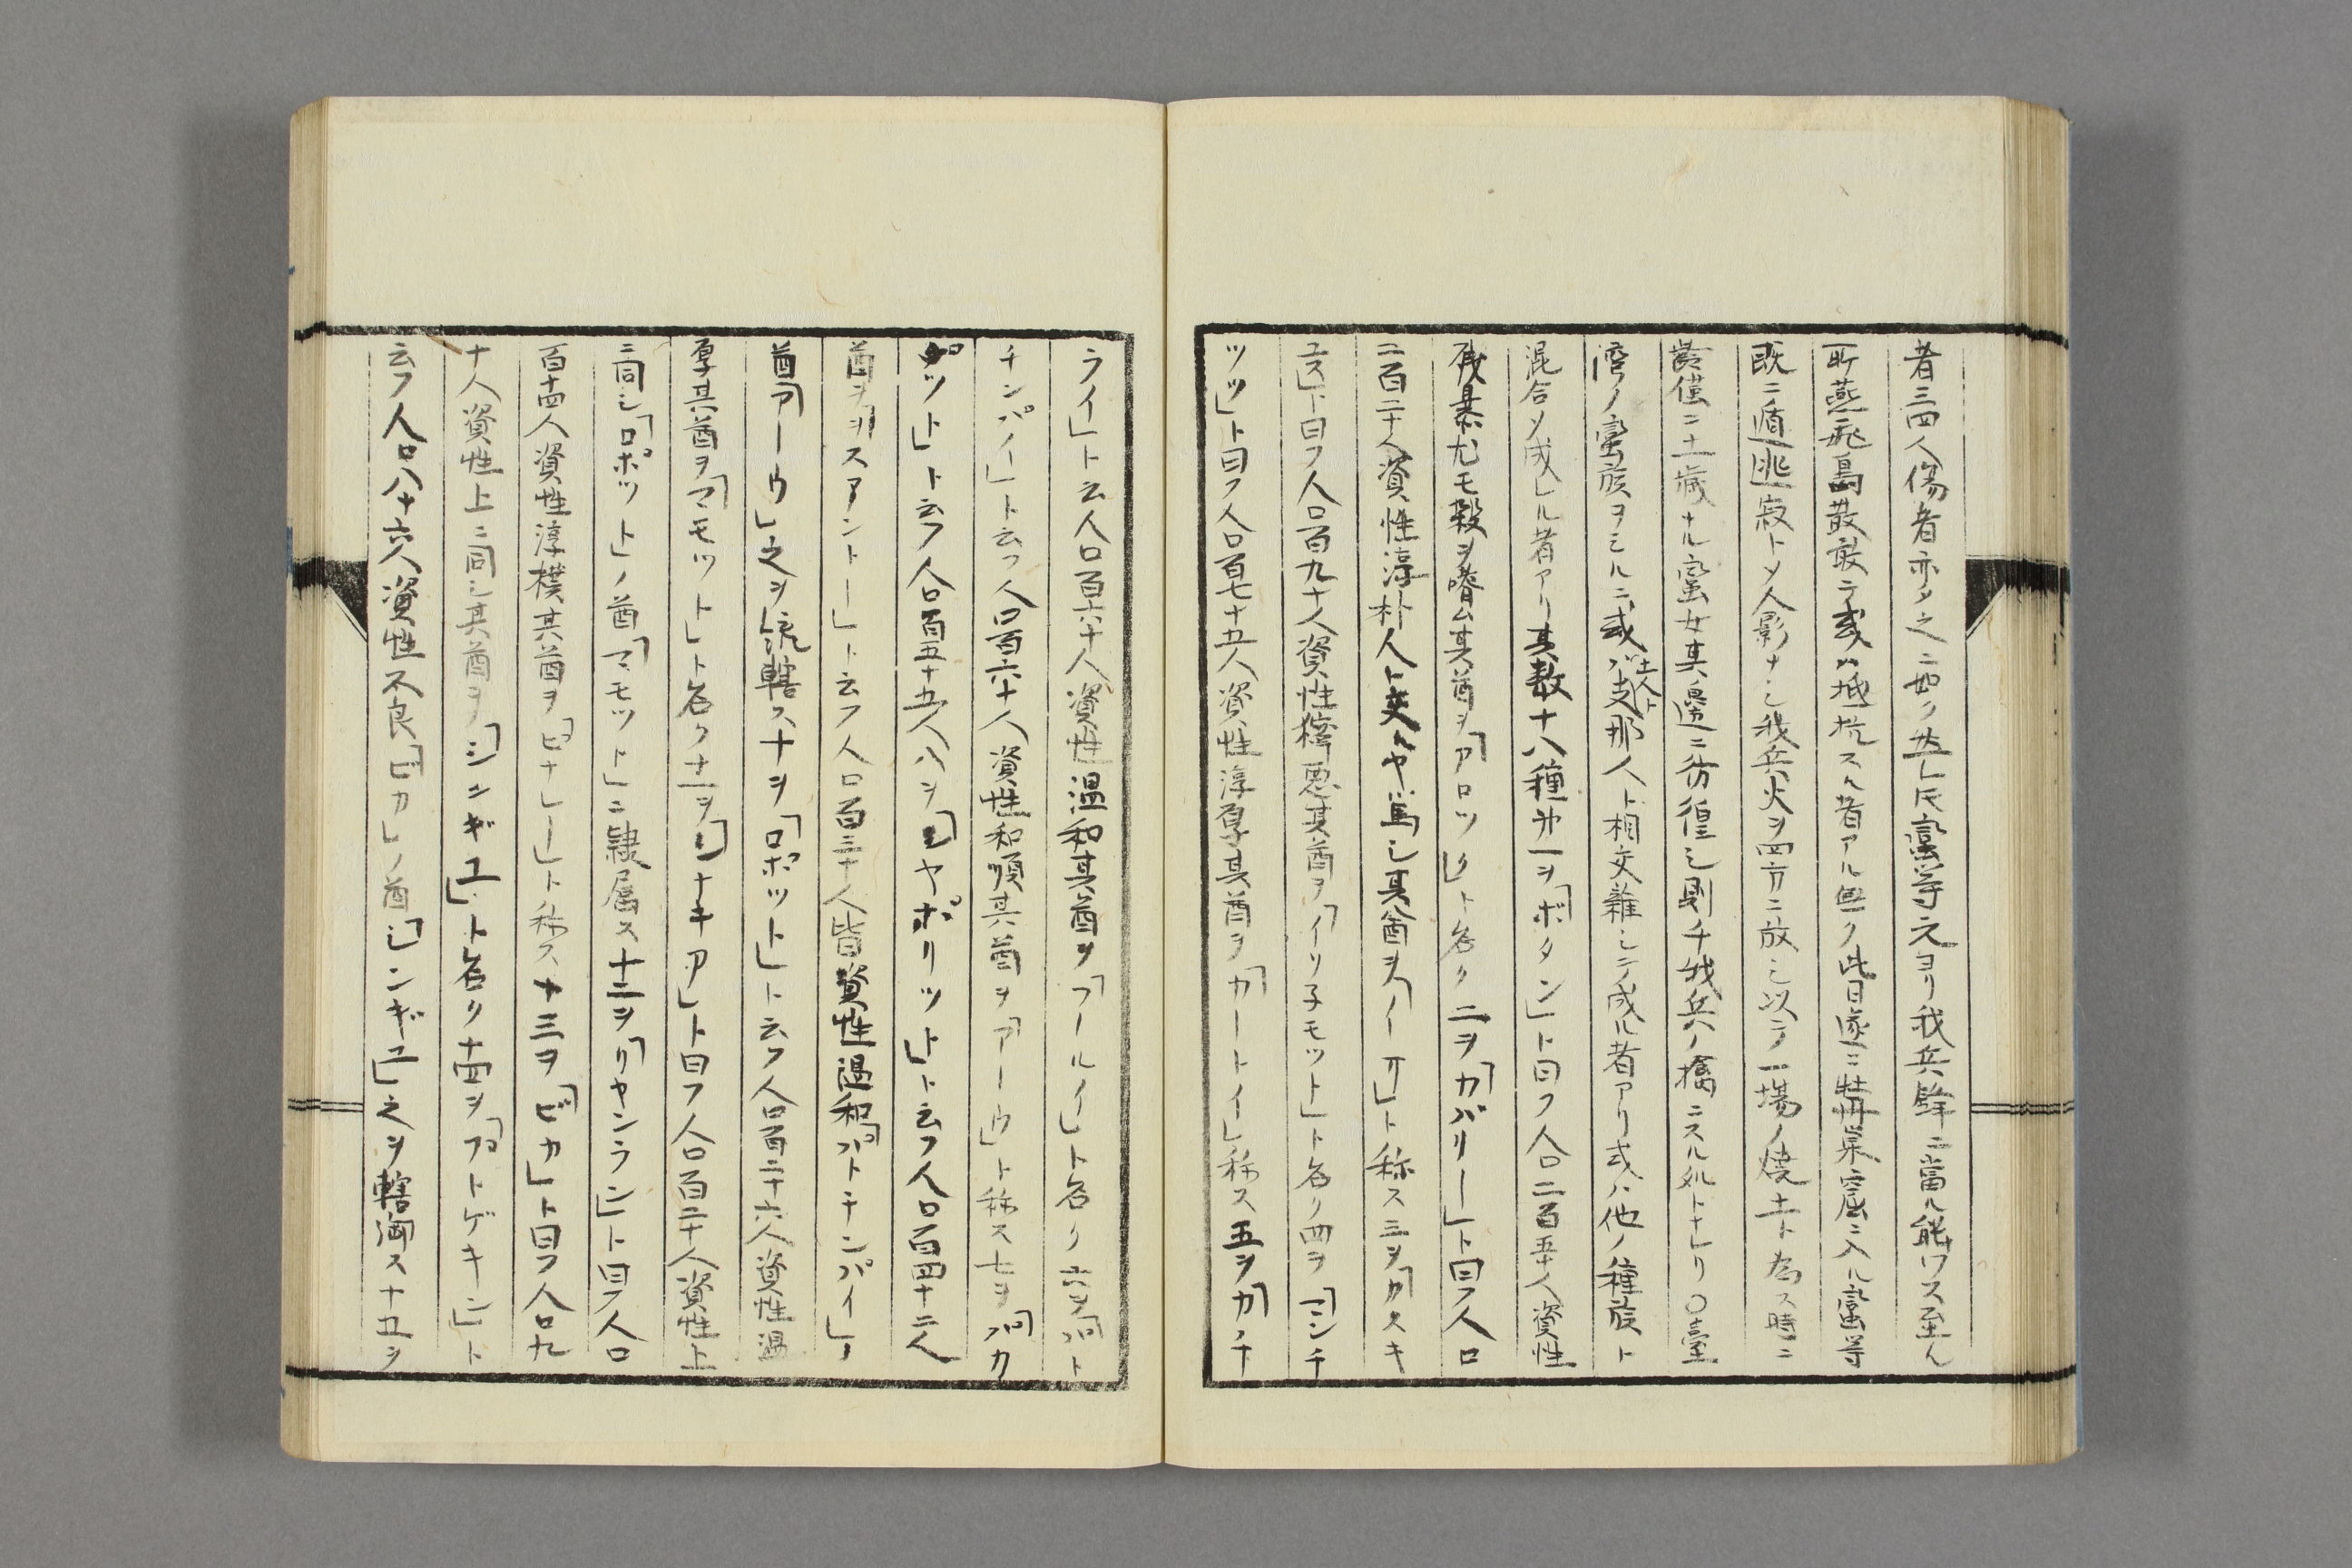 者三四人傷者亦タ之ニ如ク然レ𪜈蠻等元ヨリ我兵鋒ニ當ル能ワス至ル
所燕飛鳥散敢テ或ハ抵抗スル者アル無ク此日遂ニ牡丹巣窟ニ入ル蠻等
既ニ遁逃寂トメ人影ナシ我兵火ヲ四方ニ放シ以テ一場ノ燒土ト為ス時ニ
齡僅ニ十二歳ナル蠻女其邊ニ彷徨シ則チ我兵ノ擒ニスル処トナレリ〇臺
湾ノ蠻族ヲシルニ或ハ土人ト支那人ト相交雜シテ成ル者アリ或ハ他ノ種族ト
混合ソ成レル者アリ其数十八種第一ヲ「ボタン」ト曰フ人口二百五十人資性
残暴尤モ殺ヲ嗜ム其酋ヲ「アロツク」ト名ク二ヲ「カバリー」ト曰フ人口
二百二十人資性淳朴人ト交ルヤ篤シ其酋ヲ「ノーオ」ト称ス三ヲ「カスキ
ユス」ト曰フ人口百九十人資性獰悪其酋ヲ「イリ子モット」ト名ク四ヲ「マンチ
ツツ」ト曰フ人口百七十五人資性淳厚其酋ヲ「カートイ」称ス五ヲ「カチ
ライ」ト云人口百六十人資性温和其酋ヲ「フールイ」ト名ク六ヲ「パト
チンパイ」ト云フ人口百六十人資性和順其酋ヲ「アーウ」ト称ス七ヲ「パカ
ロット」ト云フ人口百五十五人八ヲ「ヒヤポリット」ト云フ人口百四十二人
酋ヲ「ヲスアントー」ト云フ人口百三十人皆資性温和「パトチンパイ」ノ
酋「アーウ」之ヲ統轄ス十ヲ「ロポット」ト云フ人口百二十六人資性温
厚其酋ヲ「マモット」ト名ク十一ヲ「シナキア」ト曰フ人口百二十人資性上
ニ同シ「ロポット」ノ酋「マモット」ニ隷属ス十二ヲ「リヤンラン」ト曰フ人口
百十四人資性淳樸其酋ヲ「ピナレー」ト称ス十三ヲ「ピカ」ト曰フ人口九
十人資性上ニ同シ其酋ヲ「シンギユ」ト名ク十四ヲ「プトゲキン」ト
云フ人口八十六人資性不良「ピカ」ノ酋「シンギユ」之ヲ轄御ス十五ヲ